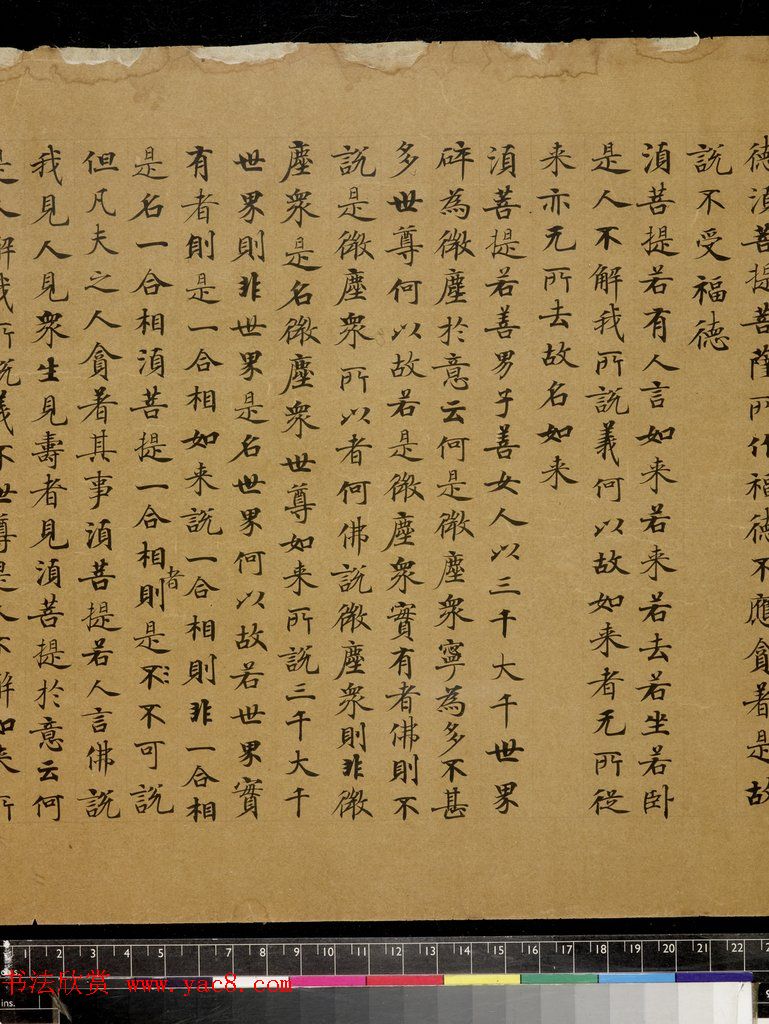 德湏菩提菩薩所作福德不應貪著是故
說不受福德
湏菩提若有人言如来若来若去若坐若卧
是人不解我所說義何以故如来者无所從
来亦无所去故名如来
湏菩提若善男子善女人以三千大千世界
碎為微塵於意云何是微塵衆寧為多不甚
多世尊何以故若是微塵衆實有者佛則不
說是微塵衆所以者何佛說微塵衆則非微
塵衆是名微塵衆世尊如来所說三千大千
世界則非世界是名世界何以故若世界實
有者則是一合相如来說一合相則非一合相
是名一合相湏菩提一合相則者是不不可說
但凡夫之人貪著其事湏菩提若人言佛說
我見人見衆生見壽者見湏菩提於意云何
是人解我所說義不世尊是人不解如来所
1 2 3 4 5 7 8 9 10 11 12 13 14 15 16 17 18 19 20 21 22
书法欣赏 www.yac8.com
ins.